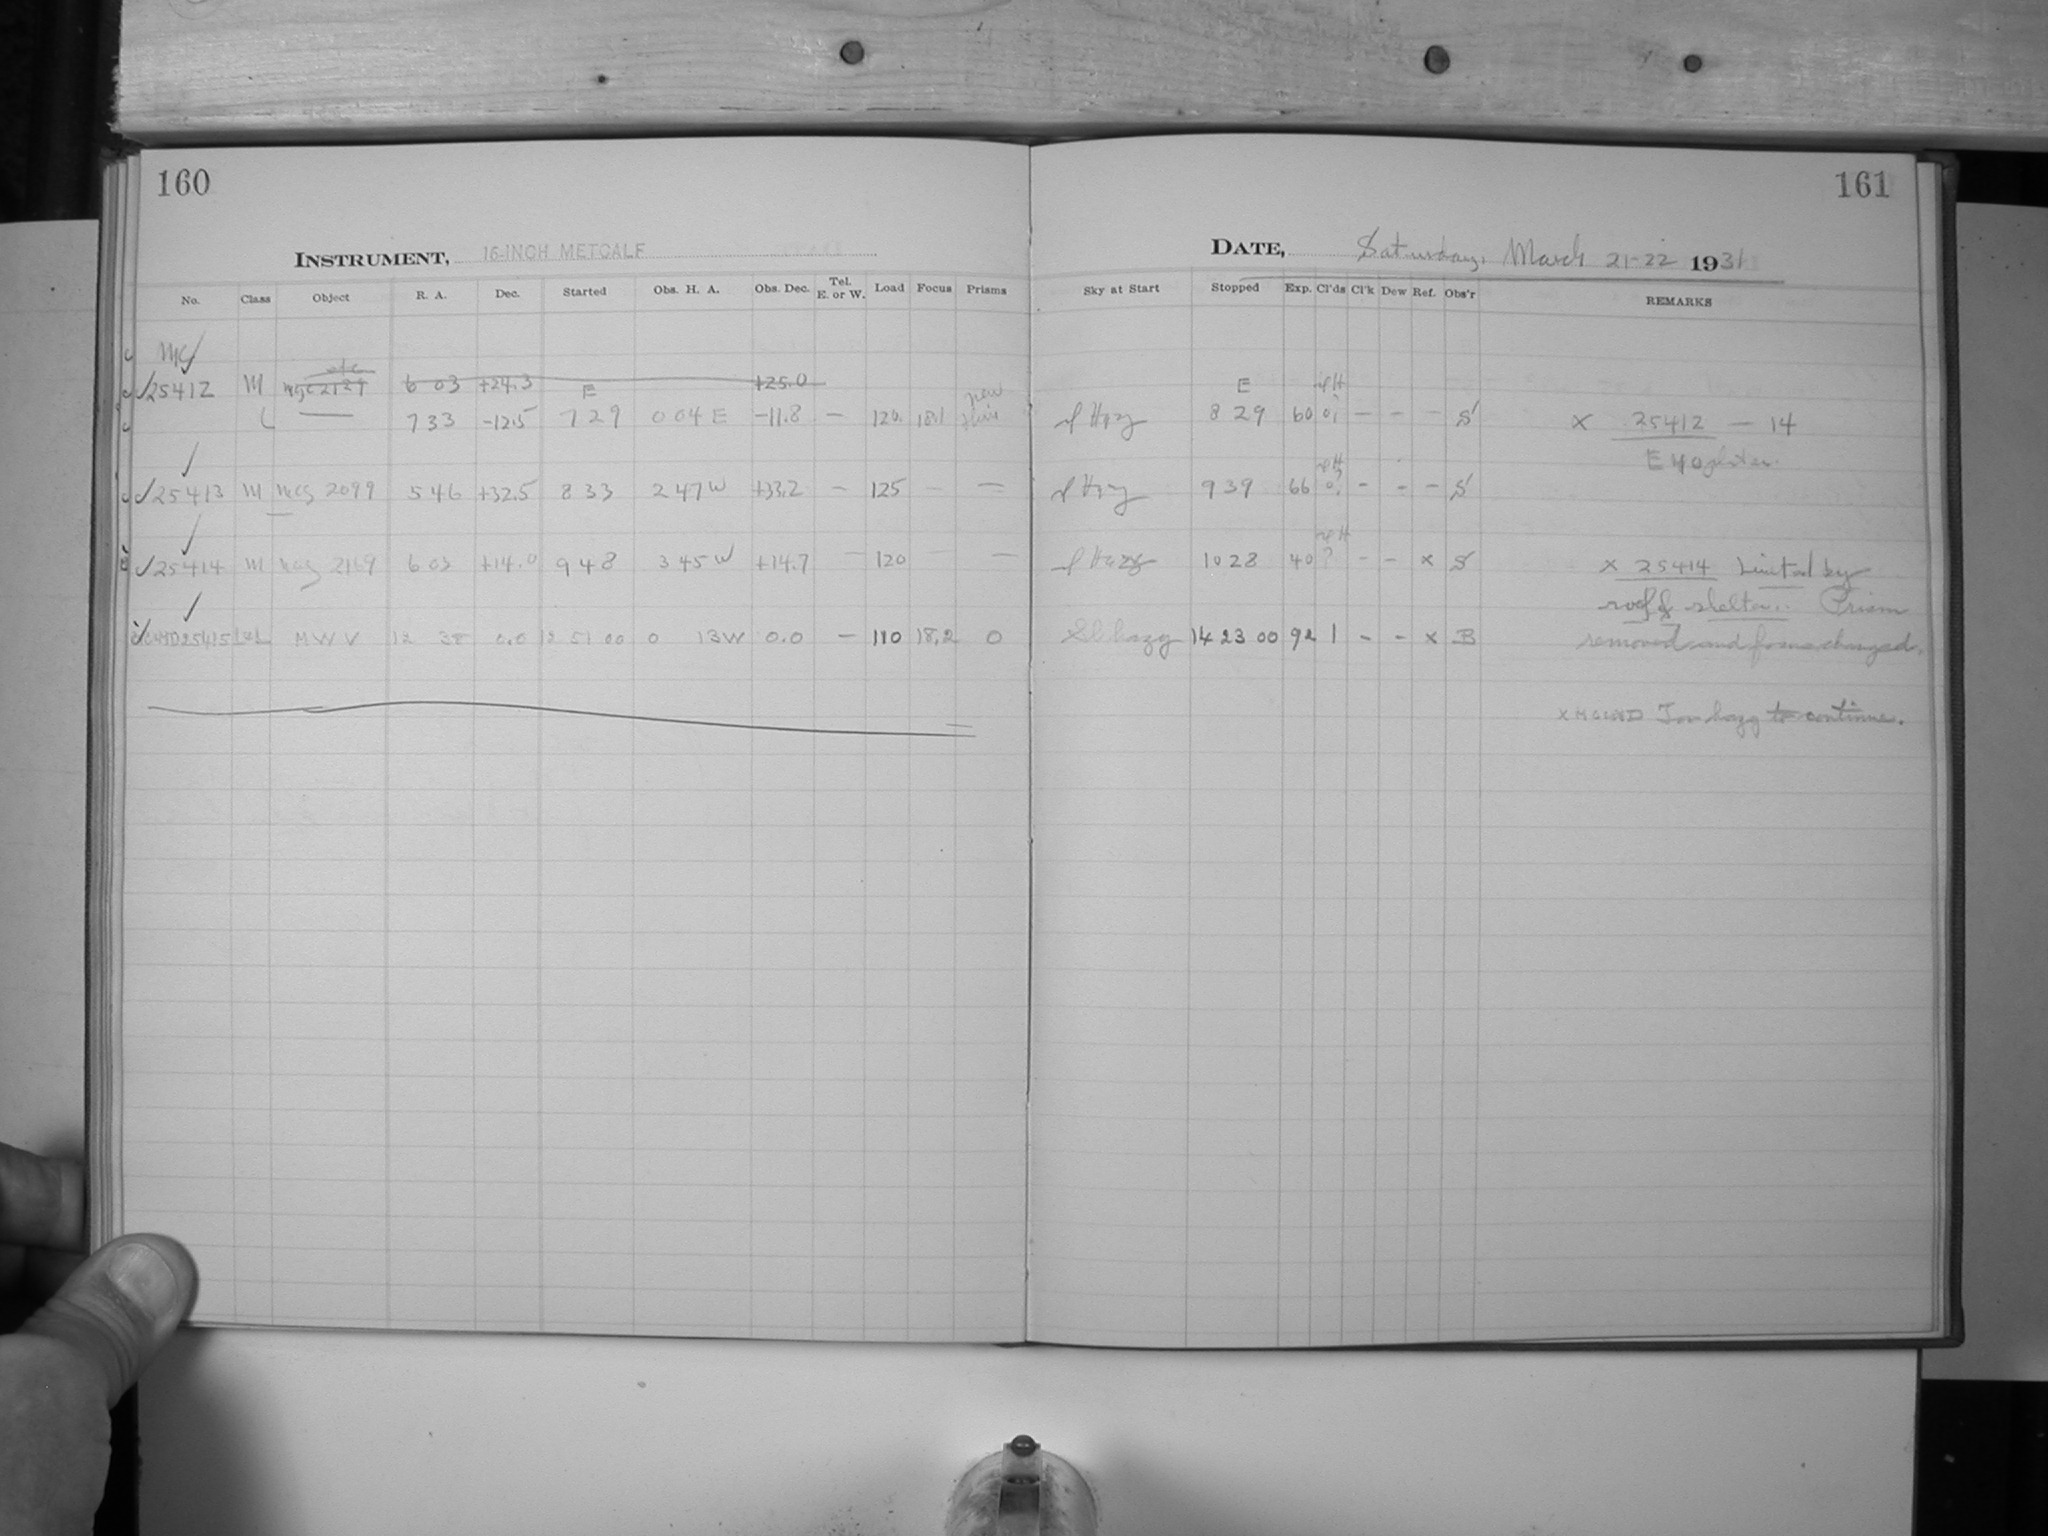 160
INSTRUMENT, 16-INCH METCALF
No. Class Object R. A. Dec. Started Obs. H. A. Obs. Dec. Tel. E. or W. Load Focus Prisms
MC
25412 M 6 03 +24.3 E +25.0 new
L 7 33 -12.5 7 29 0 04 E -11.8 – 120 18.1
25413 M 2099 5 46 +32.5 8 33 2 47 W +33.2 – 125 – –
25414 M 2169 6 03 +14.0 9 48 3 45 W +14.7 – 120 – –
25415 M W V 12 38 0.0 12 51 00 0 13 W 0.0 – 110 18.2 0
161
DATE, Saturday, March 21-22 1931
Sky at Start Stopped Exp. Cl'ds Cl'k Dew Ref. Obs'r REMARKS
E
Hazy 8 29 60 0? – – – S x 25412 – 14
E 40 plates.
Hazy 9 39 66 0? – – – S
Hazy 10 28 40 ? – – x S x 25414 Limited by
roof of shelter. Prism
Sl. hazy 14 23 00 92 1 – – x B removed and focus changed.
Too hazy to continue.